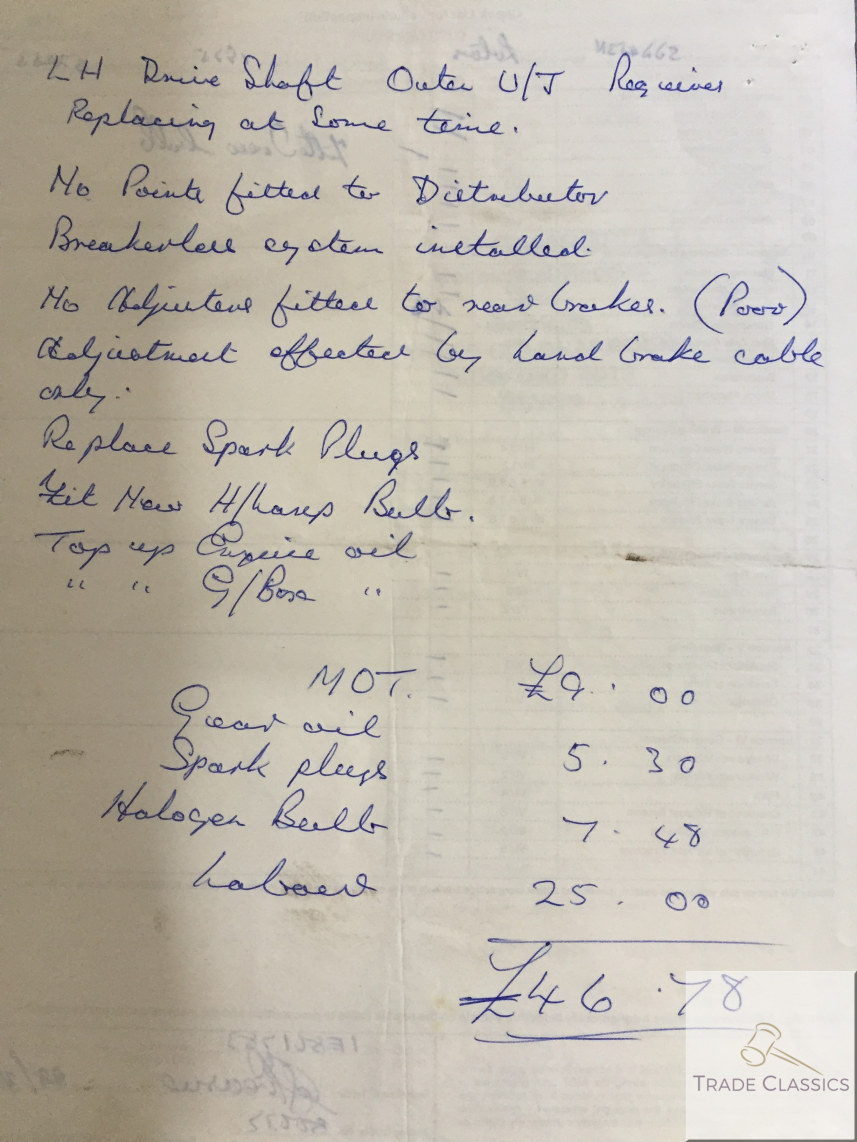 LH Drive Shaft Outer U/J Requires
Replacing at Some time.
No Points fitted to Distributor
Breakerless system installed.
No Adjusters fitted to rear brakes. (Poor)
Adjustment effected by hand brake cable
only.
Replace Spark Plugs
Fit New H/Lamp Bulb.
Top up Engine oil
" " G/Box "
MOT. £9. 00
Gear oil
Spark plugs 5. 30
Halogen Bulb 7. 48
Labour 25. 00
£46.78
TRADE CLASSICS